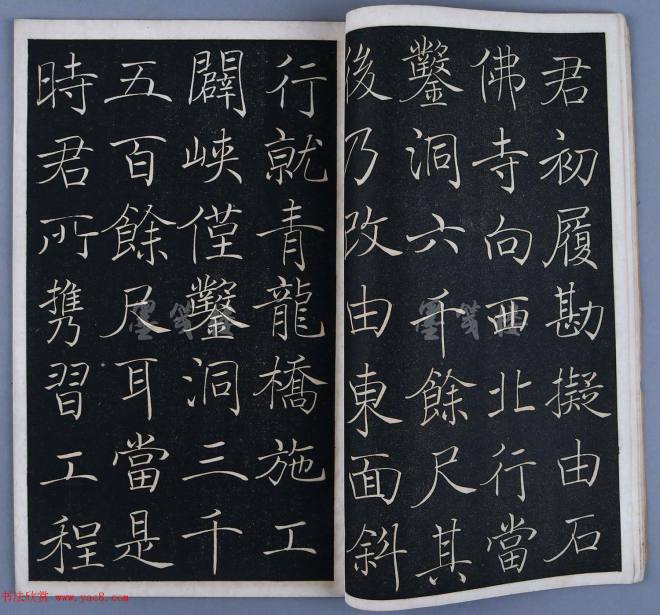 君初履勘擬由石
佛寺向西北行當
鑿洞六千餘尺其
後乃改由東面斜
行就青龍橋施工
闢峽僅鑿洞三千
五百餘尺耳當是
時君所攜習工程
书法欣赏 www.yac8.com